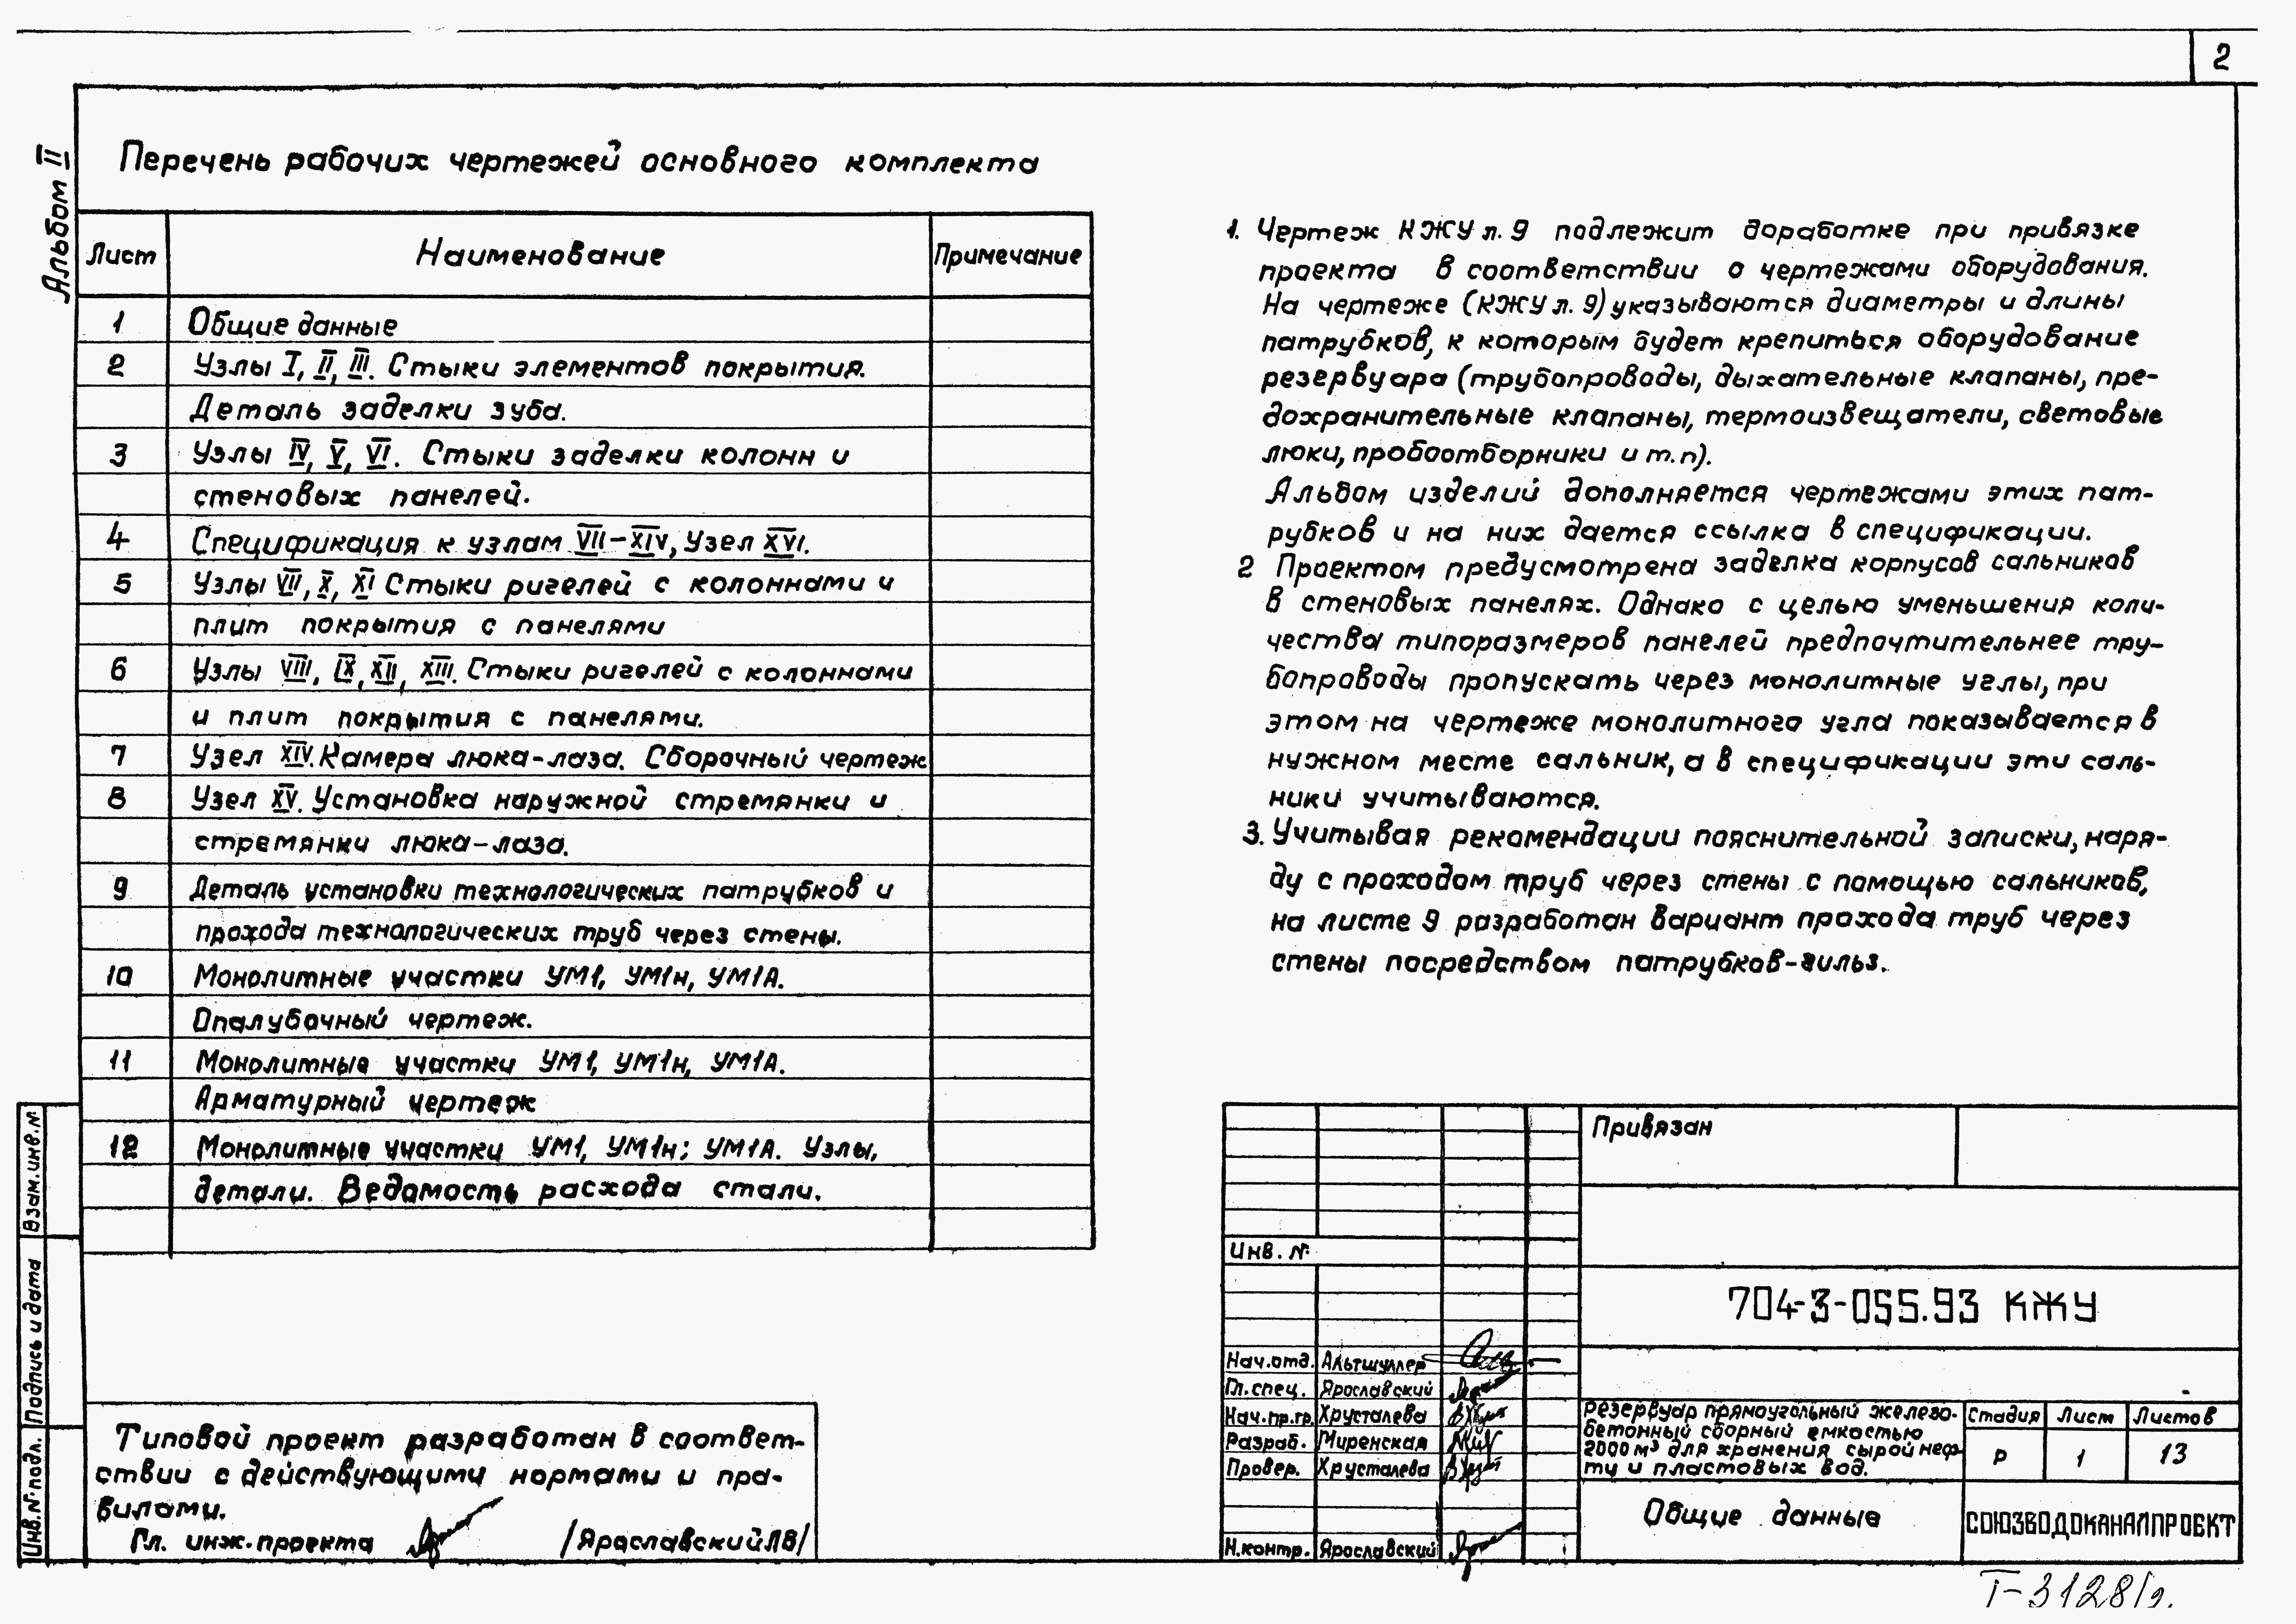 2
Альбом II
Перечень рабочих чертежей основного комплекта
Лист Наименование Примечание
1 Общие данные
2 Узлы I, II, III. Стыки элементов покрытия.
Деталь заделки зуба.
3 Узлы IV, V, VI. Стыки заделки колонн и
стеновых панелей.
4 Спецификация к узлам VII-XIV, Узел XVI.
5 Узлы VII, X, XI Стыки ригелей с колоннами и
плит покрытия с панелями
6 Узлы VIII, IX, XII, XIII. Стыки ригелей с колоннами
и плит покрытия с панелями.
7 Узел XIV. Камера люка-лаза. Сборочный чертеж
8 Узел XV. Установка наружной стремянки и
стремянки люка-лаза.
9 Деталь установки технологических патрубков и
прохода технологических труб через стены.
10 Монолитные участки УМ1, УМ1н, УМ1А.
Опалубочный чертеж.
11 Монолитные участки УМ1, УМ1н, УМ1А.
Арматурный чертеж
12 Монолитные участки УМ1, УМ1н; УМ1А. Узлы,
детали. Ведомость расхода стали.
1. Чертеж КЖУ л. 9 подлежит доработке при привязке
проекта в соответствии с чертежами оборудования.
На чертеже (КЖУ л. 9) указываются диаметры и длины
патрубков, к которым будет крепиться оборудование
резервуара (трубопроводы, дыхательные клапаны, пре-
дохранительные клапаны, термоизвещатели, световые
люки, пробоотборники и т.п).
Альбом изделий дополняется чертежами этих пат-
рубков и на них дается ссылка в спецификации.
2 Проектом предусмотрена заделка корпусов сальников
в стеновых панелях. Однако с целью уменьшения коли-
чества типоразмеров панелей предпочтительнее тру-
бопроводы пропускать через монолитные углы, при
этом на чертеже монолитного угла показывается в
нужном месте сальник, а в спецификации эти саль-
ники учитываются.
3. Учитывая рекомендации пояснительной записки, наря-
ду с проходом труб через стены с помощью сальников,
на листе 9 разработан вариант прохода труб через
стены посредством патрубков-гильз.
Взам.инв.N
Подпись и дата
Инв.N подл.
Типовой проект разработан в соответ-
ствии с действующими нормами и пра-
вилами.
Гл. инж. проекта /Ярославский Л В/
Привязан
Инв. N
704-3-055.93 КЖУ
Нач.отд. Альтшуллер
Гл.спец. Ярославский
Нач.пр.гр. Хрусталева
Разраб. Миренская
Провер. Хрусталева
Н.контр. Ярославский
Резервуар прямоугольный железо-
бетонный сборный емкостью
2000 м³ для хранения сырой неф-
ти и пластовых вод.
Стадия Лист Листов
Р 1 13
Общие данные
СОЮЗВОДОКАНАЛПРОЕКТ